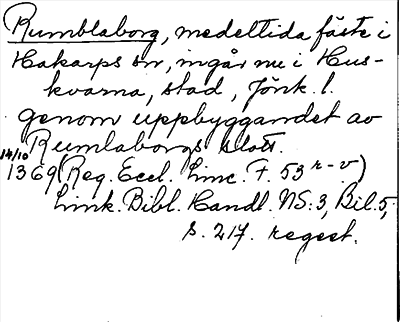 Rumblaborg, medeltida fäste i
Hakarps sn, ingår nu i Hus-
kvarna, stad, Jönk. l.
genom uppbyggandet av
Rumlaborgs slott.
14/10
1369 (Reg. Eccl. Linc. F. 53 r-v)
Link. Bibl. Handl. NS:3, Bil. 5,
s. 217. regest.